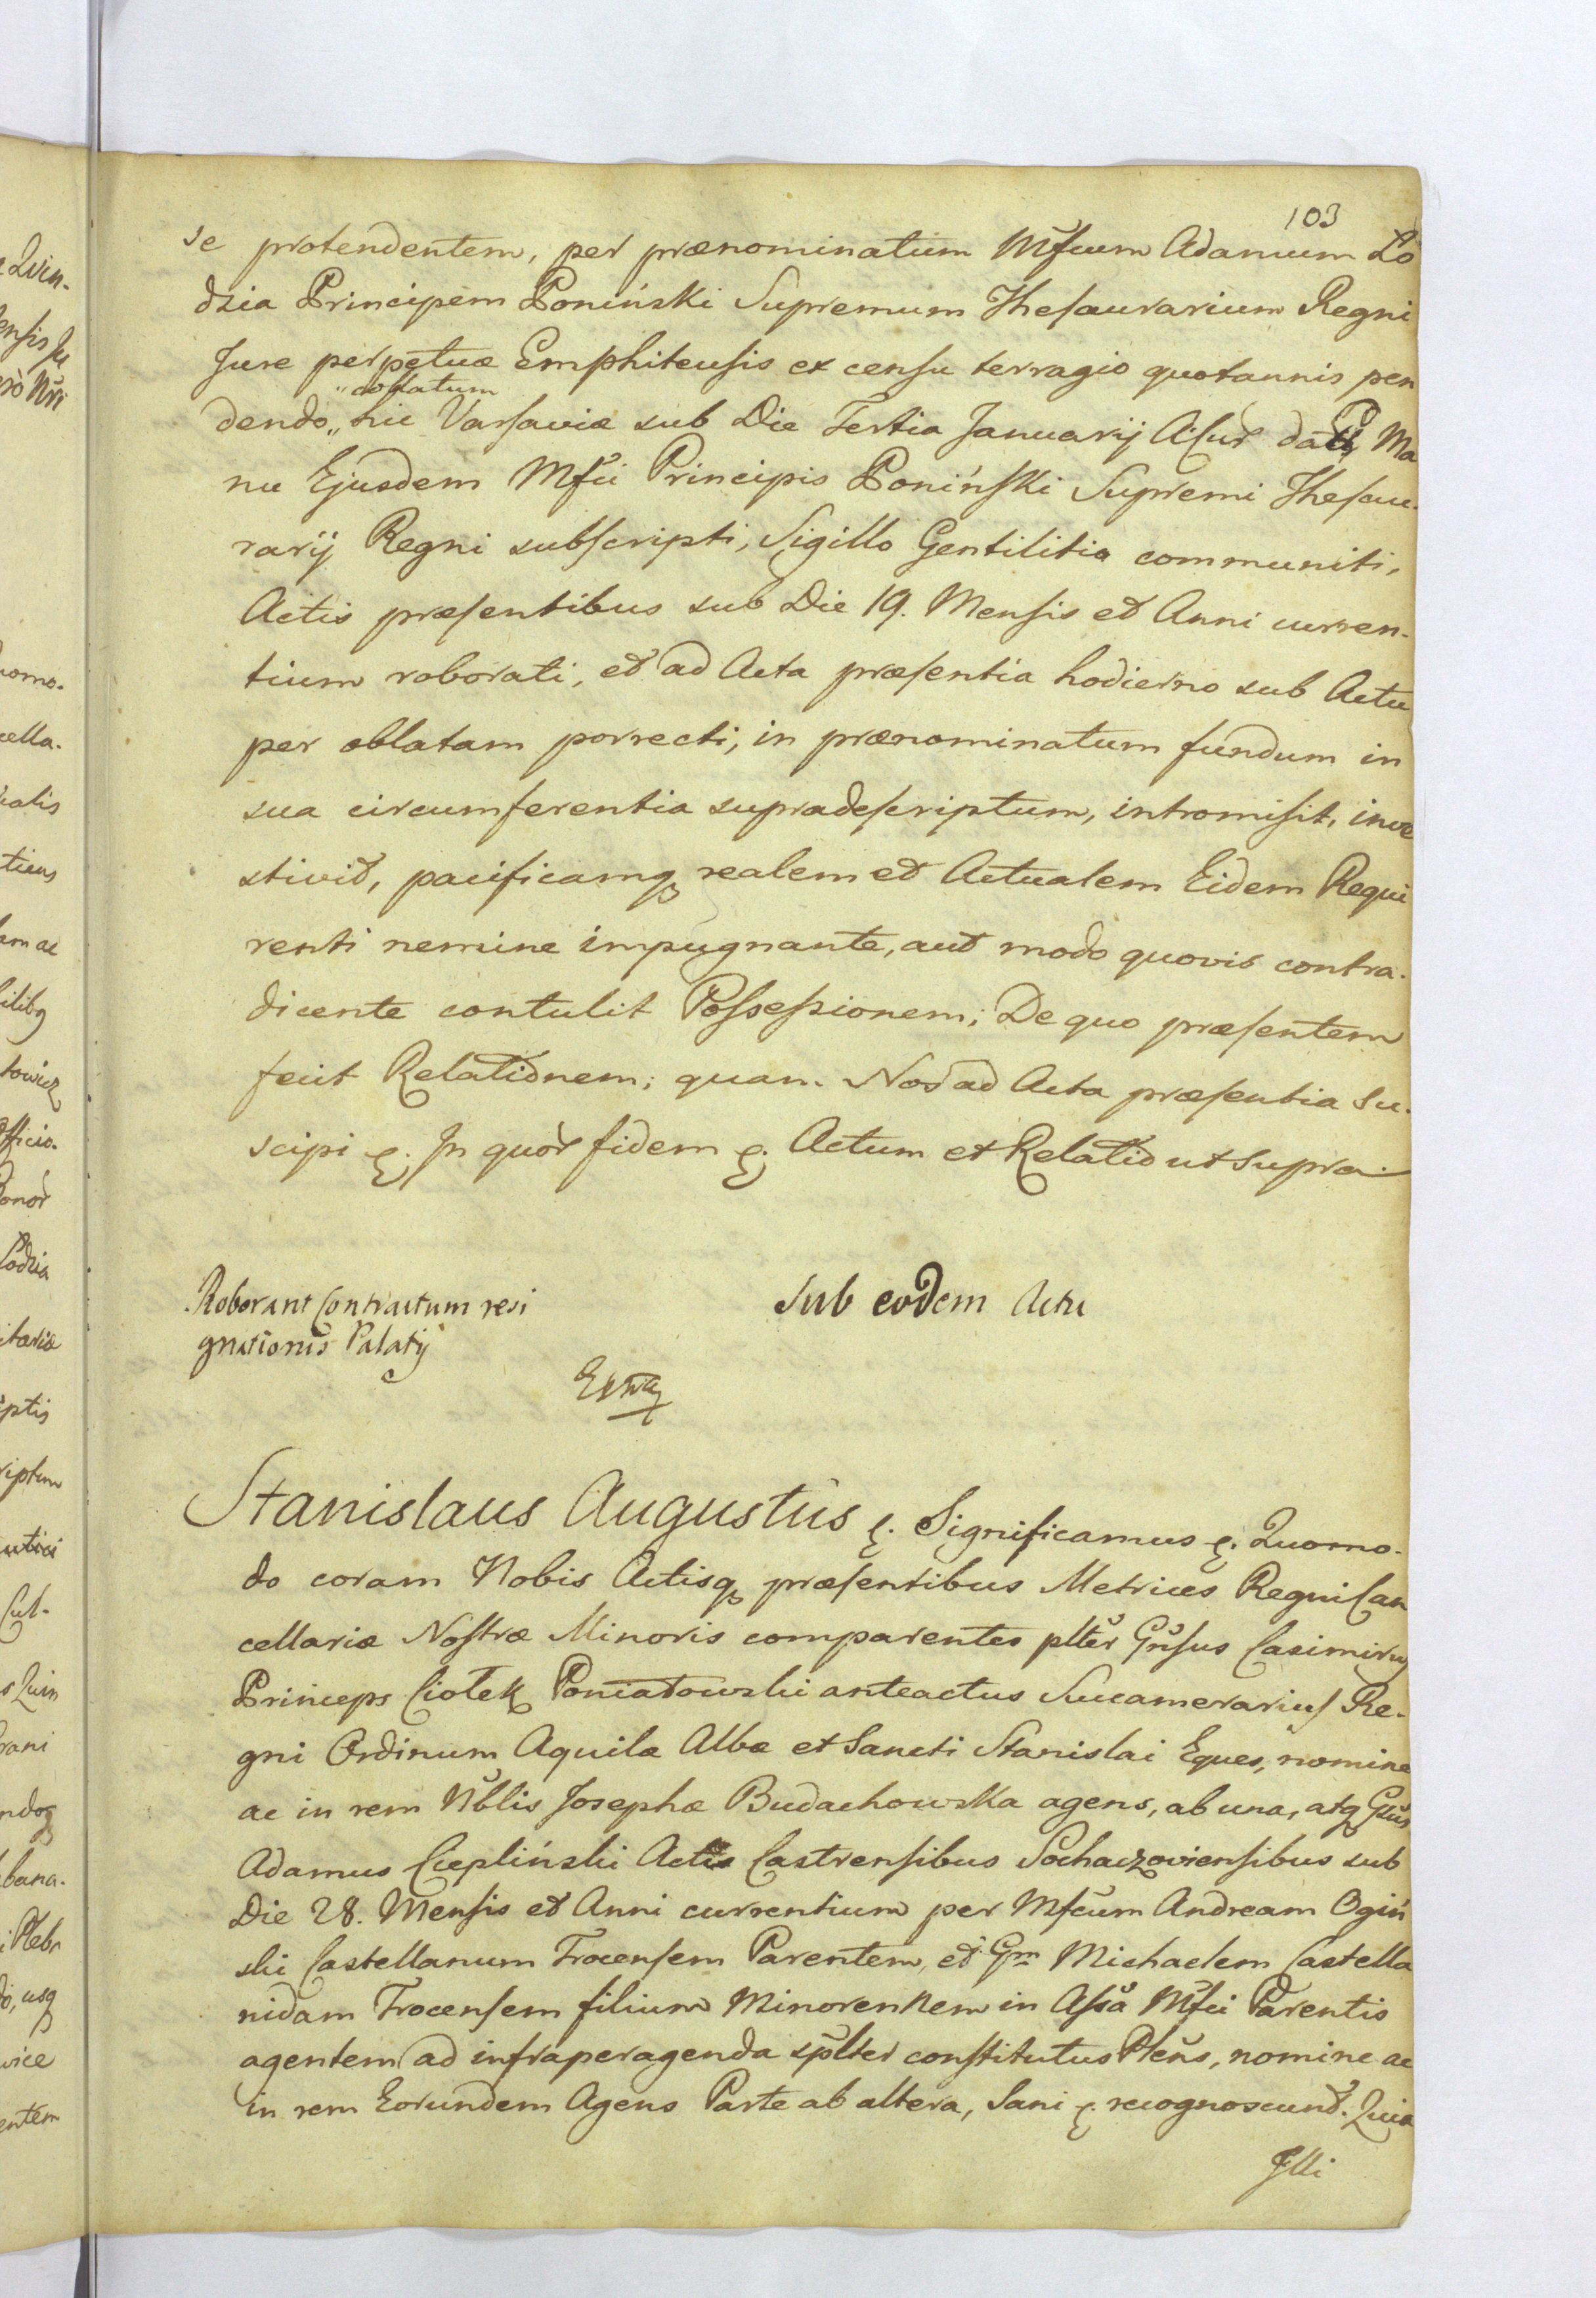 103
se protendentem, per prænominatum Mfcum Adamum Lo
dzia Principem Poniński Supremum Thesaurarium Regni
Jure perpetuæ Emphiteusis ex censu terragio quotannis pen
„collatum
dendo„ hic Varsaviæ sub Die Tertia Januarij A: cur dat Ma
nu Ejusdem Mfci Principis Poniński Supremi Thesau-
rarij Regni subscripti, Sigillo Gentilitio communiti,
Actis præsentibus sub Die 19. Mensis et Anni curren-
tium roborati, et ad Acta præsentia hodierno sub Actu
per oblatam porrecti, in prænominatum fundum in
sua circumferentia supradescriptum, intromisit, inve
stivit, pacificamq realem et Actualem Eidem Requi
renti nemine impugnante, aut modo quovis contra-
dicente contulit Possessionem; De quo præsentem
fecit Relationem; quam Nos ad Acta præsentia su-
scipi &. In quor fidem &. Actum et Relatio ut supra
Roborant Contractum resi
gnationis Palatij
Sub eodem Actu
Stanislaus Augustus &. Significamus &. Quomo-
do coram Nobis Actisq præsentibus Metrices Regni Can
cellariæ Nostræ Minoris comparentes plter Gnsus Casimirus
Princeps Ciołek Poniatowski anteactus Succamerarius Re-
gni Ordinum Aquilæ Albæ et Sancti Stanislai Eques, nomine
ac in rem Nblis Josephæ Budachowska agens, ab una, atq Gsus
Adamus Ciepliński Actis Castrensibus Sochaczoviensibus sub
Die 28. Mensis et Anni currentium per Mfcum Andream Ogiń
ski Castellanum Trocensem Parentem, et Gm Michaelem Castella
nidam Trocensem filium Minorennem in Assa Mfci Parentis
agentem ad infraperagenda splter constitutus Plens, nomine ac
in rem Eorundem Agens Parte ab altera, Sani &. recognoscund. Quia
Illi